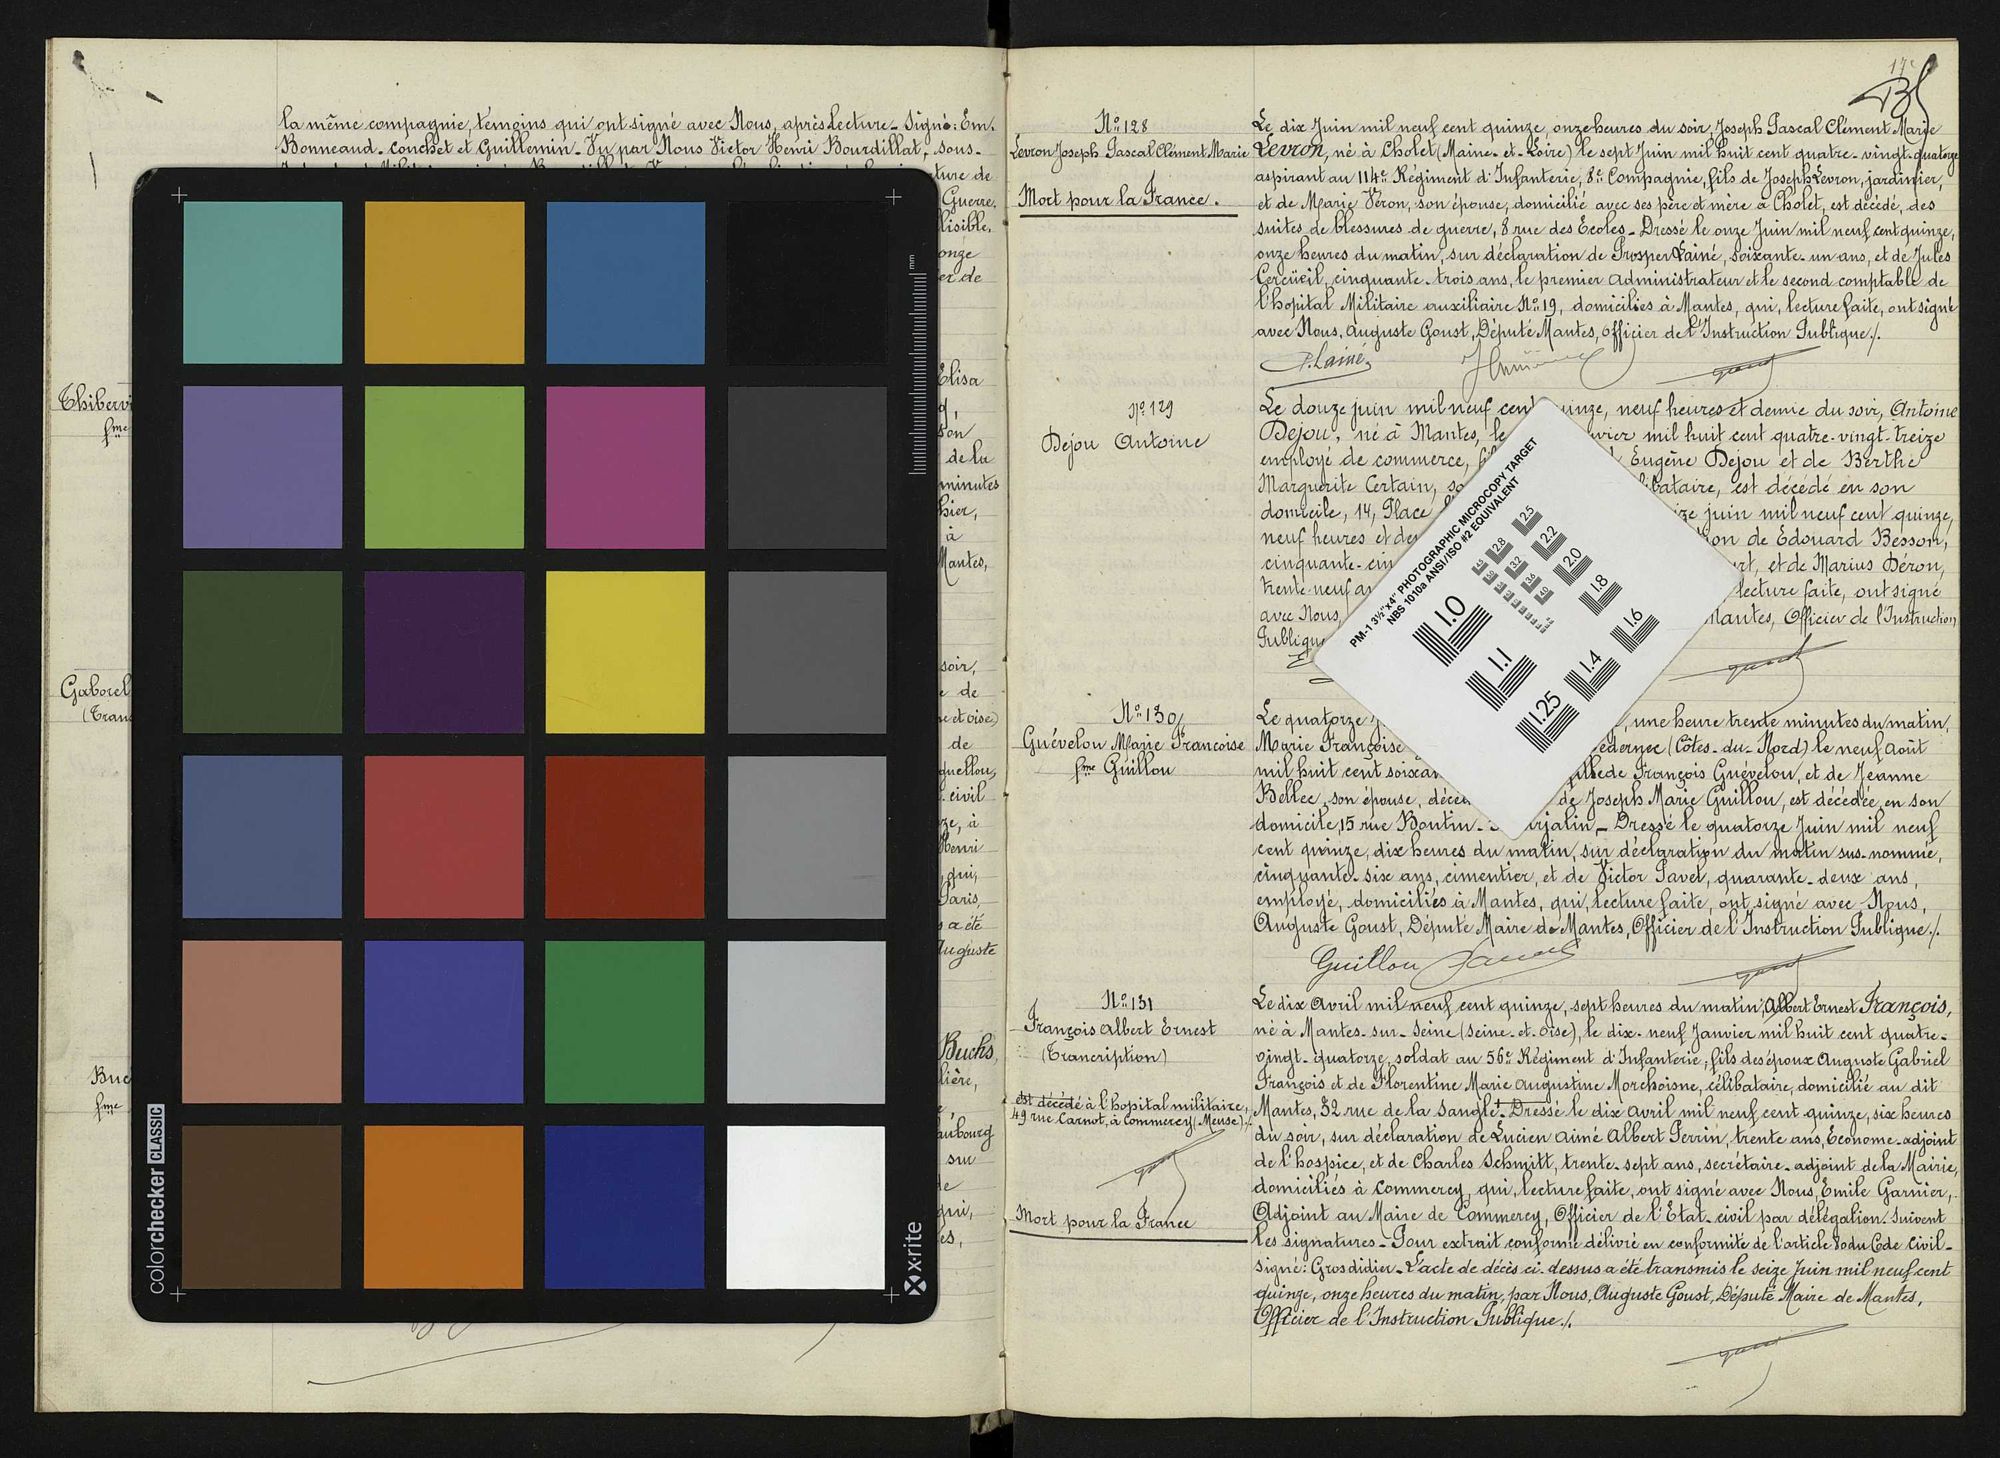 la même compagnie, témoins qui ont signé avec Nous, après lecture_ Signé: Em.
Bonneaud_ Conchet et Guillemin_ Vu par Nous Victor Henri Bourdillat, sous-
ture de
Guerre.
lisible,
onze
er de
Elisa
Thiberv
fme
son
de la
minutes
hier,
à
Mantes,
soir,
Gaborel
e de
(Tran
e et oise)
de
quellou,
civil
ze, à
Henri
qui,
Paris,
a été
Auguste
Buchs,
lière,
Buc
fme
aubourg
sur
de
qui,
es,
mm
colorchecker CLASSIC
x-rite
17
N° 128
Levron Joseph Pascal Clément Marie
Mort pour la France.
Le dix Juin mil neuf cent quinze, onze heures du soir, Joseph Pascal Clément Marie
Levron, né à Cholet (Maine-et-Loire) le sept Juin mil huit cent quatre-vingt-quatorze
aspirant au 114e Régiment d'Infanterie, 8e Compagnie, fils de Joseph Levron, jardinier,
et de Marie Véron, son épouse, domicilié avec ses père et mère à Cholet, est décédé, des
suites de blessures de guerre, 8 rue des Ecoles_ Dressé le onze Juin mil neuf cent quinze,
onze heures du matin, sur déclaration de Prosper Lainé, soixante-un ans, et de Jules
Cercüeil, cinquante-trois ans, le premier administrateur et le second comptable de
l'hopital Militaire auxiliaire N° 19, domiciliés à Mantes, qui, lecture faite, ont signé
avec Nous, Auguste Goust, Député Mantes, Officier de l'Instruction Publique./.
P. Lainé
N° 129
Dejou Antoine
Le douze juin mil neuf cent quinze, neuf heures et demie du soir, Antoine
Dejou, né à Mantes, le vier mil huit cent quatre-vingt-treize
employé de commerce, Eugène Dejou et de Berthe
Marguerite Certain, libataire, est décédé en son
domicile, 14, Place ize juin mil neuf cent quinze,
neuf heures et de on de Edouard Besson,
cinquante-cin rt, et de Marius Déron,
trente-neuf a lecture faite, ont signé
avec Nous, Mantes, Officier de l'Instruction
Publique
PM-1 3½"x4" PHOTOGRAPHIC MICROCOPY TARGET
NBS 1010a ANSI/ISO #2 EQUIVALENT
1.0
1.1
1.25
1.4
1.6
1.8
2.0
2.2
2.5
2.8
3.2
3.6
4.0
4.5
N° 130
Guévelou Marie Francoise
fme Guillou
Le quatorze , une heure trente minutes du matin,
Marie Françoise édernec (Côtes-du-Nord) le neuf Août
mil huit cent soixan fille de François Guévelou, et de Jeanne
Bellec, son épouse, décé de Joseph Marie Guillou, est décédée en son
domicile, 15 rue Boutin- rjalin_ Dressé le quatorze Juin mil neuf
cent quinze, dix heures du matin, sur déclaration du matin sus-nommé,
cinquante-six ans, cimentier, et de Victor Pavet, quarante-deux ans,
employé, domiciliés à Mantes, qui, lecture faite, ont signé avec Nous,
Auguste Goust, Député Maire de Mantes, Officier de l'Instruction Publique./.
Guillou
N° 131
François Albert Ernest
(Trancription)
est décédé à l'hopital militaire,
49 rue Carnot, à Commercy (Meuse)./.
Mort pour la France
Le dix Avril mil neuf cent quinze, sept heures du matin, Albert Ernest François,
né à Mantes-sur-Seine (Seine-et-Oise), le dix-neuf Janvier mil huit cent quatre-
vingt-quatorze, soldat au 56e Régiment d'Infanterie, fils des époux Auguste Gabriel
François et de Florentine Marie Augustine Morchoisne, célibataire, domicilié au dit
Mantes, 32 rue de la Sangle_ Dressé le dix Avril mil neuf cent quinze, six heures
du soir, sur déclaration de Lucien Aimé Albert Perrin, trente ans, Econome-adjoint
de l'hospice, et de Charles Schmitt, trente-sept ans, secrétaire-adjoint de la Mairie,
domiciliés à Commercy, qui, lecture faite, ont signé avec Nous, Emile Garnier,
Adjoint au Maire de Commercy, Officier de l'Etat-civil par délégation. Suivent
les signatures_ Pour extrait conforme délivré en conformité de l'article 80 du Code Civil_
Signé: Grosdidier_ L'acte de décès ci-dessus a été transmis le seize Juin mil neuf cent
quinze, onze heures du matin, par Nous, Auguste Goust, Député Maire de Mantes,
Officier de l'Instruction Publique./.